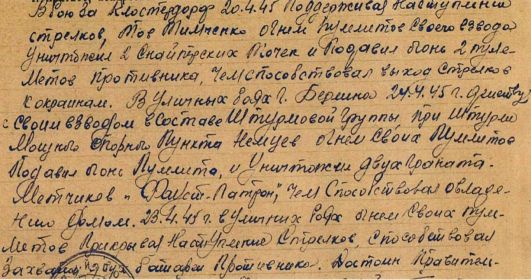 В бою за Клостердорф 20.4.45 Поддерживая Наступление
стрелков, Тов Тимченко огнем Пулиметов Своего взвода
Уничтожил 2 Снайперских точек и Подавил огонь 2 пуле-
метов Противника, чем способствовал выход Стрелков
к окраинам. В Уличных боях г. Берлина 24.4.45 г. действуя
с Своим взводом в Составе Штурмовой группы, при Штурме
Мощного Опорного Пункта Немцев огнем Своих Пулиметов
Подавил огонь Пулимета, и Уничтожил двух Граната-
метчиков "Фауст-Патрон", Чем Способствовал овладе-
нию домом. 23.4.45 г. в уличных боях огнем Своих пули-
метов Прикрывал Наступление Стрелков, Способствовал
Захвату двух батарей Противника. Достоин Правитель-